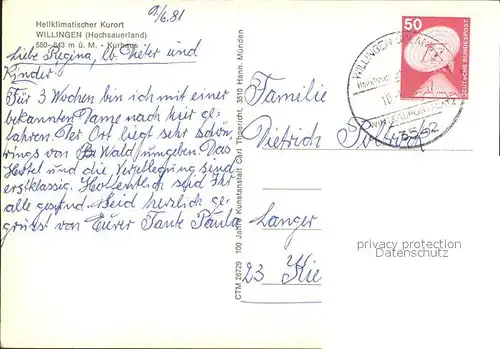 9/6.81
Heilklimatischer Kurort
WILLINGEN (Hochsauerland)
580-843 m ü. M. - Kurhaus
Liebe Regina, lb. Dieter und
Kinder!
Für 3 Wochen bin ich mit einer
bekannten Dame nach hier ge-
fahren. Der Ort liegt sehr schön,
rings von Wald umgeben. Das
Hotel und die Verpflegung sind
erstklassig. Hoffentlich seid Ihr
alle gesund. Seid herzlich ge-
grüsst von Eurer Tante Paula
CTM 26729 100 Jahre Kunstanstalt Carl Thoericht, 3510 Hann. Münden
50
DEUTSCHE BUNDESPOST
WILLINGEN
3542
Familie
Dietrich
Langer
23 Kie
privacy protection
Datenschutz